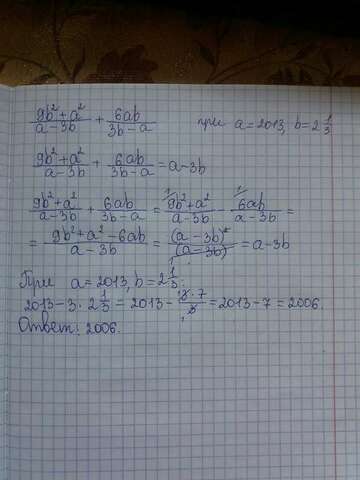 (9b²+a²)/(a-3b) + 6ab/(3b-a) при a=2013, b=2 1/3
(9b²+a²)/(a-3b) + 6ab/(3b-a) = a-3b
(9b²+a²)/(a-3b) + 6ab/(3b-a) = (9b²+a²)/(a-3b) - 6ab/(a-3b) =
= (9b²+a²-6ab)/(a-3b) = (a-3b)²/(a-3b) = a-3b
При a=2013, b=2 1/3:
2013-3·2 1/3 = 2013- (3·7)/3 = 2013-7 = 2006.
Ответ: 2006.